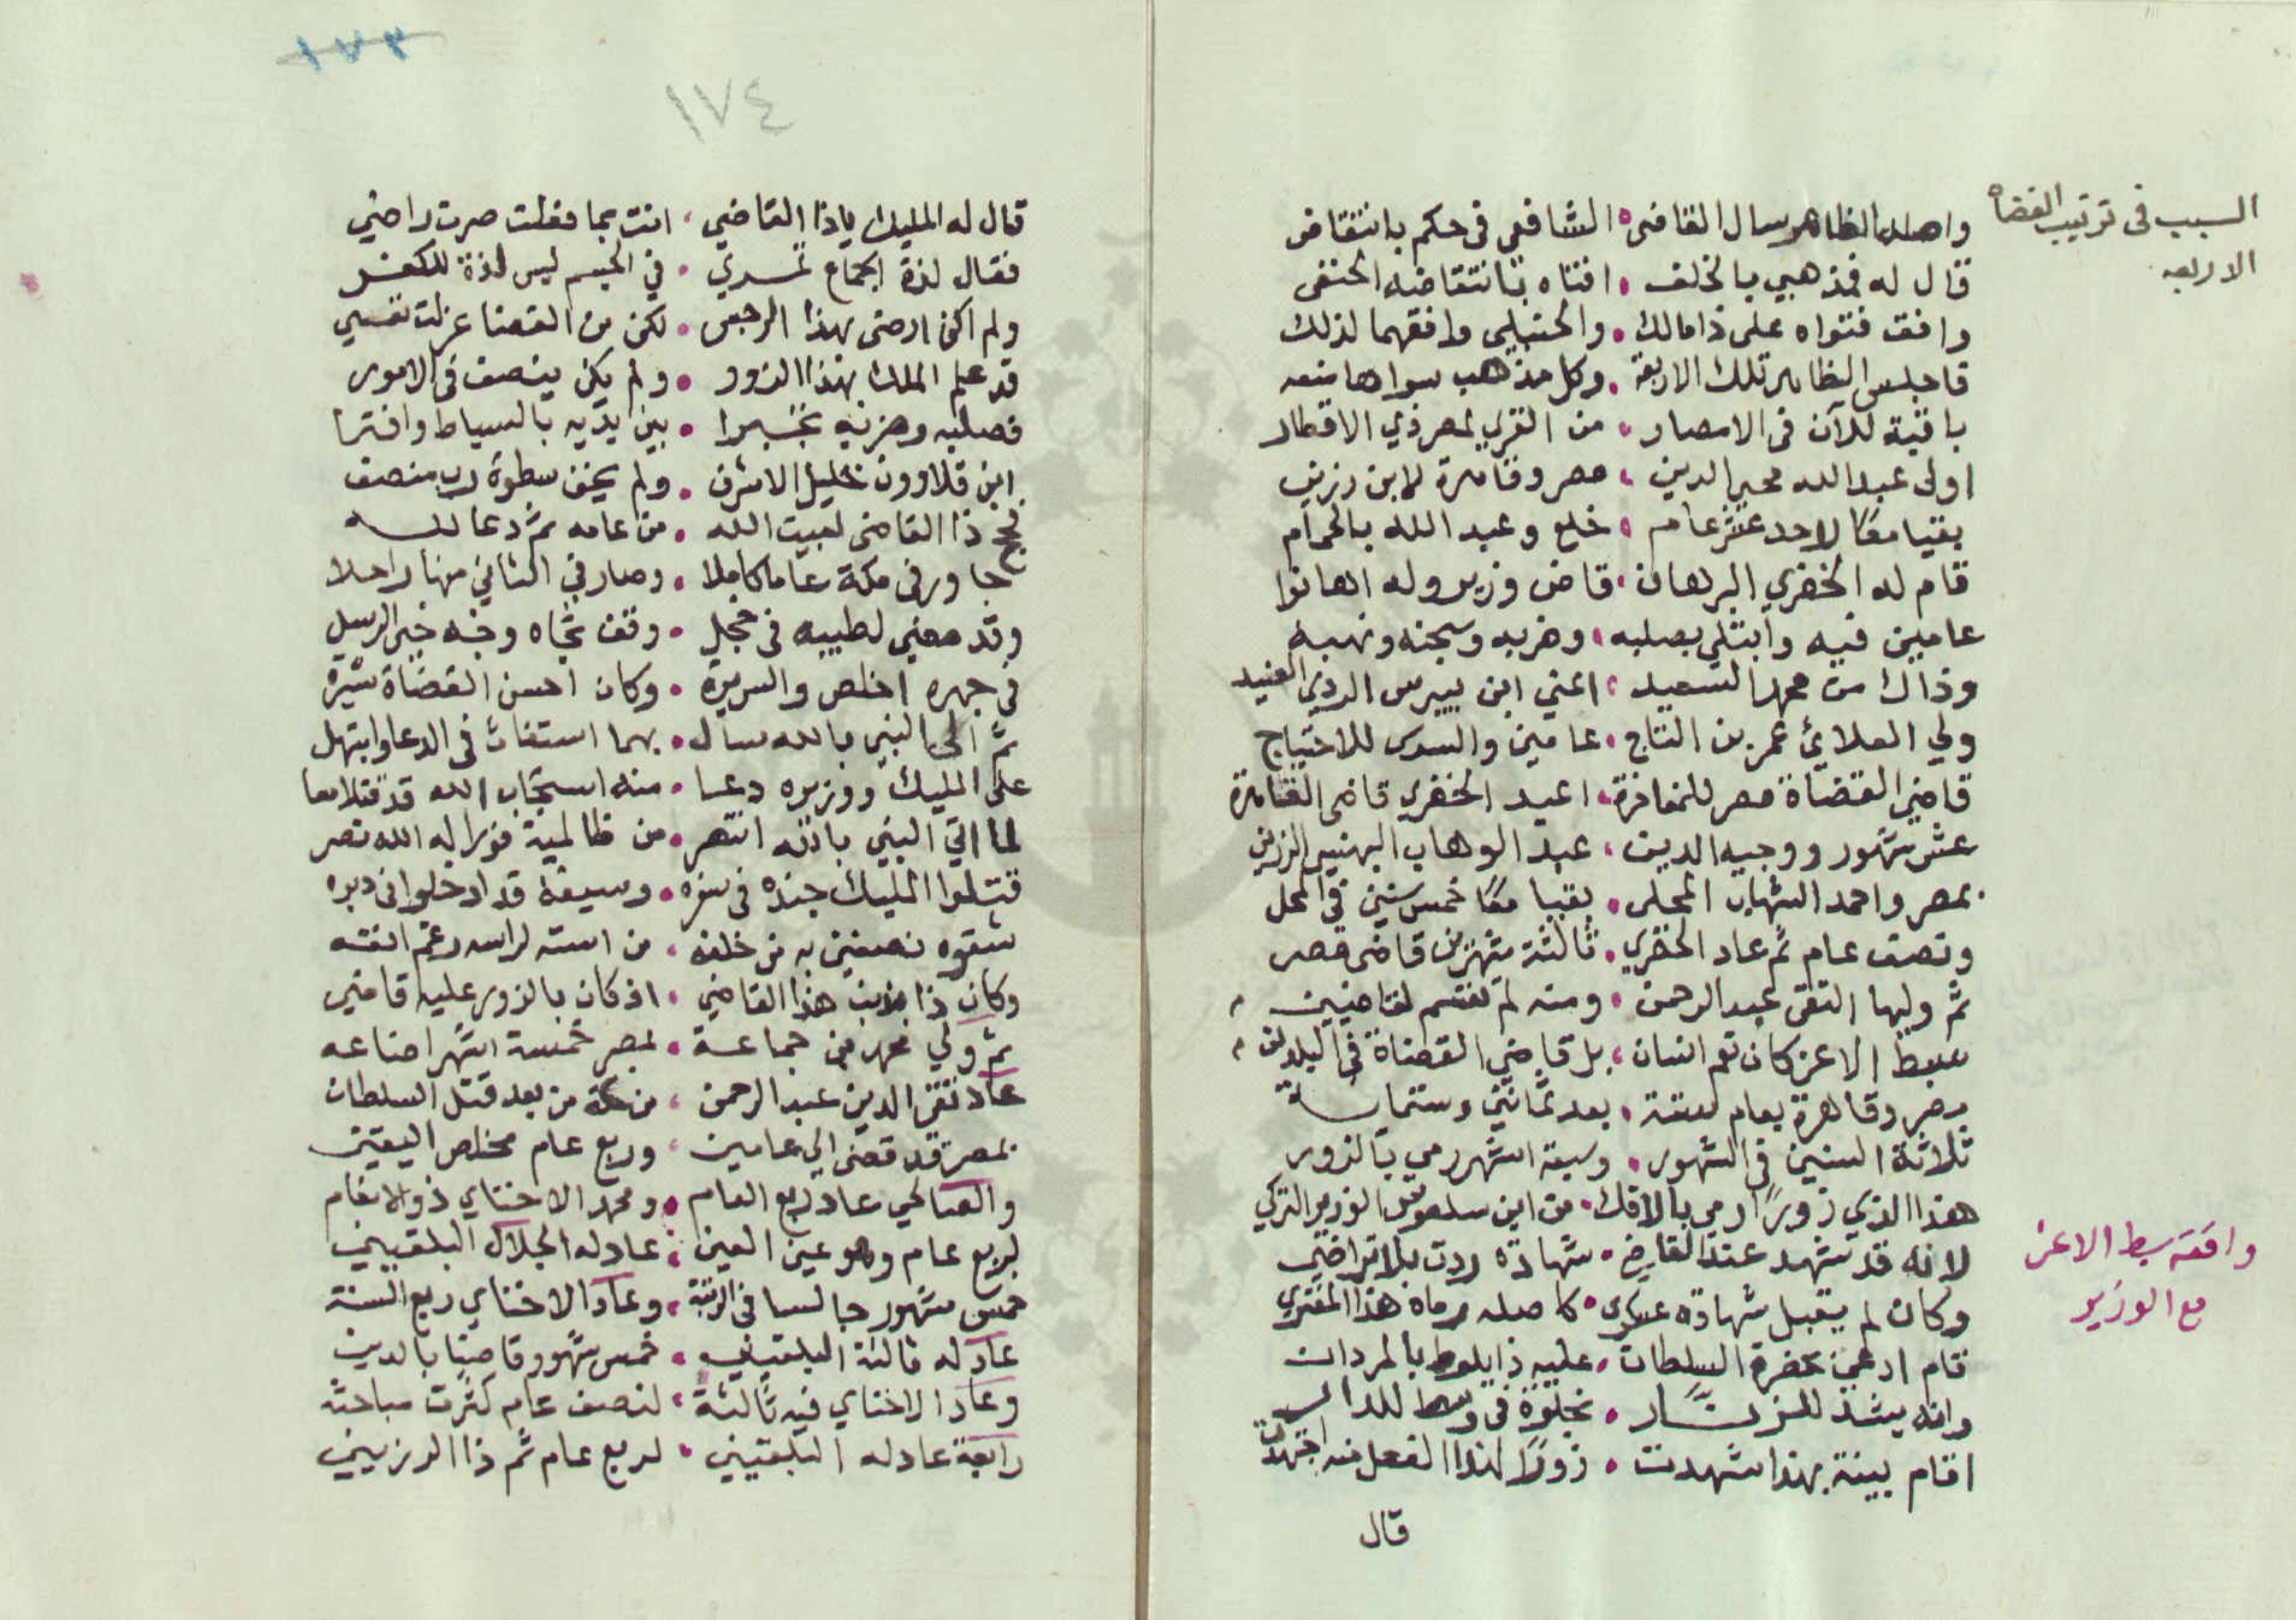 السبب فى ترتيب القضاه
الاربعه
واصله الظاهر سال القاضى • الشافعى فى حكم بانتقاض
قال له فمذهبي بالخلف • افتاه بانتقاضه الحنفى
وافق فتواه على ذا مالك • والحنبلي وافقهما لذلك
فاجلس الظاهر تلك الاربعة • وكل مذهب سواها منعه
باقية للآن فى الامصار • من القرى لمصر ذي الاقطار
اولى عبد الله محيي الدين • مصر وقاهرة لابن رزين
بقيا معًا لاحد عشر عام • خلع وعبد الله بالحمام
قام له الخضري البرهان • قاض وزير وله اهانوا
عامين فيه وابتلي بصلبه • وضربه وسجنه ونهبه
وذاك من محمد السعيد • اعني ابن بيبرس الردي العنيد
ولي العلائي عمر بن التاج • عامين والسدس للاحتياج
قاضي القضاة مصر للمفاخرة • اعيد الخضري قاضى القاهرة
عشر شهور ووجيه الدين • عبد الوهاب البهنسي الرزين
بمصر واحمد الشهاب المحلى • بقيا معًا خمس سنين فى المحل
ونصف عام ثم عاد الخضري • ثالثة شهرين قاضى مصر
ثم وليها التقى عبد الرحمن • ومنه لم تقسم لقاضيين
سبط الاعز كان نعم انسان • بل قاضي القضاة فى البلدين
بمصر وقاهرة بعام ستة • بعد ثمانين وستماية
ثلاثة السنين فى الشهور • وسبعة اشهر رمي بالزور
هذا الذي زورًا رمي بالافك • من ابن سلعوس الوزير التركي
لانه قد شهد عند القاضي • شهادة ردت بلا تراضي
وكان لم يقبل شهادة عسكرى • كاصله رماه هذا المفتري
قام ادعى بحضرة السلطان • عليه ذا يلوط بالمردان
وانه يشد للزنار • بخلوة فى وسط للدار
اقام بينة بهذا شهدت • زورًا لهذا الفعل منه اجتهدت
قال
واقعة سبط الاعز
مع الوزير
١٧٣
١٧٤
قال له المليك ياذا القاضي • انت بما فعلت صرت راضي
فقال لذة الجماع تسري • في الجسم ليس لذة للكفر
ولم اكن ارضى بهذا الرجس • لكن من القضا عزلت نفسي
قد علم الملك بهذا الزور • ولم يكن ينصف فى الامور
فصلبه وضربه تجبرا • بين يديه بالسياط وافترا
ابن قلاوون خليل الاشرف • ولم يخف سطوة رب منصف
فحج ذا القاضى لبيت الله • من عامه ثم دعا لله
جاور فى مكة عاما كاملا • وصار في الثاني منها راحلا
وقد مضي لطيبه فى خجل • وقف تجاه وجه خير الرسل
فى جهره اخلص والسريرة • وكان احسن القضاة سيرة
ثم الى النبي بالله سال • بهما استغاث فى الدعا وابتهل
على المليك ووزيره دعا • منه استجاب الله قد قتلا معا
لما اتي النبي بالله انتصر • من ظالميه فورا له الله نصر
قتلوا المليك جنده فى سفره • وسيفه قد ادخلوا فى دبره
شقوه نصفين به من خلفه • من استه لراسه رغم انفه
وكان ذا بذنب هذا القاضي • اذ كان بالزور عليه قاضي
ثم ولي محمد من جماعة • بمصر خمسة اشهر اضاعه
عاد تقي الدين عبد الرحمن • من مكة من بعد قتل السلطان
بمصر قد قضى الي عامين • وربع عام مخلص اليقين
والصالحي عاد ربع العام • ومحمد الاخناي ذو الانعام
لربع عام وهو عين العين • عاد له الجلال البلقيني
خمس شهور جالسا فى الرتبة • وعاد الاخناي ربع السنة
عاد له ثالثة البلقيني • خمس شهور قاضيًا بالدين
وعاد الاخناي فيه ثالثة • لنصف عام كثرت مباحثه
رابعة عاد له البلقيني • لربع عام ثم ذا الرزيني